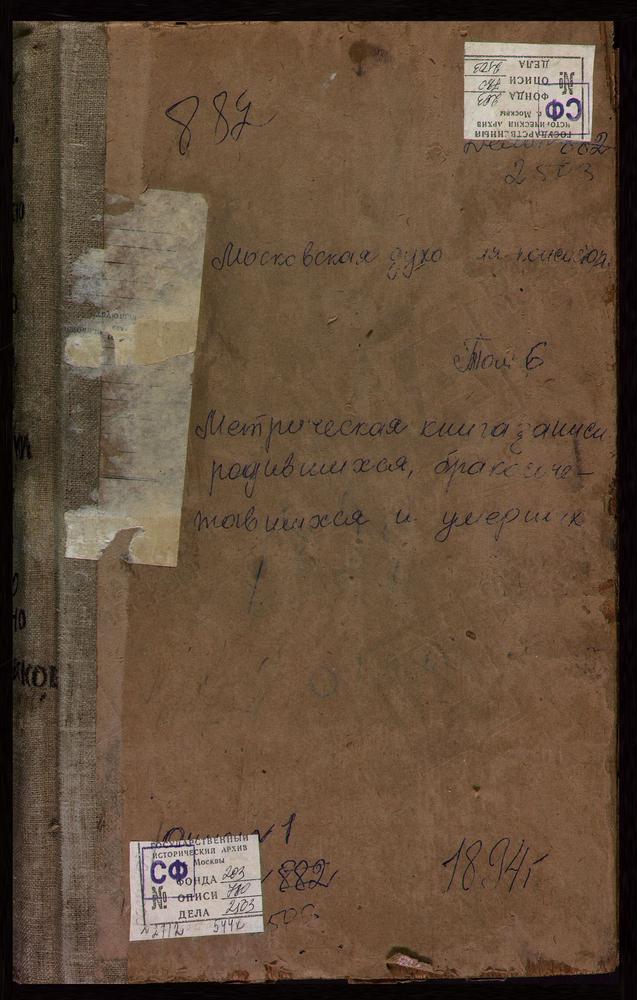 882
ГОСУДАРСТВЕННЫЙ
ИСТОРИЧЕСКИЙ АРХИВ
г. Москвы
СФ
№
ФОНДА 203
ОПИСИ 780
ДЕЛА 2503
2503
Московская духо ая консистор.
Том 6
Метрическая книга записи
родившихся, бракосоче-
тавшихся и умерших
1
882
1894 г
ГОСУДАРСТВЕННЫЙ
ИСТОРИЧЕСКИЙ АРХИВ
г. Москвы
СФ
№
ФОНДА 203
ОПИСИ 780
ДЕЛА 2503